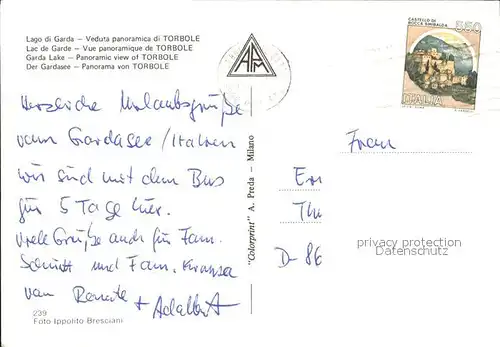 Lago di Garda – Veduta panoramica di TORBOLE
Lac de Garde – Vue panoramique de TORBOLE
Garda Lake – Panoramic view of TORBOLE
Der Gardasee – Panorama von TORBOLE
APM
CASTELLO DI
ROCCA SINIBALDA
550
ITALIA
Herzliche Urlaubsgrüße
vom Gardasee / Italien
wir sind mit dem Bus
für 5 Tage hier.
viele Grüße auch für Fam.
Schmitt und Fam.
von Renate + Adalbert
"Colorprint" A. Preda – Milano
Frau
Em
Th
D-86
privacy protection
Datenschutz
239
Foto Ippolito Bresciani